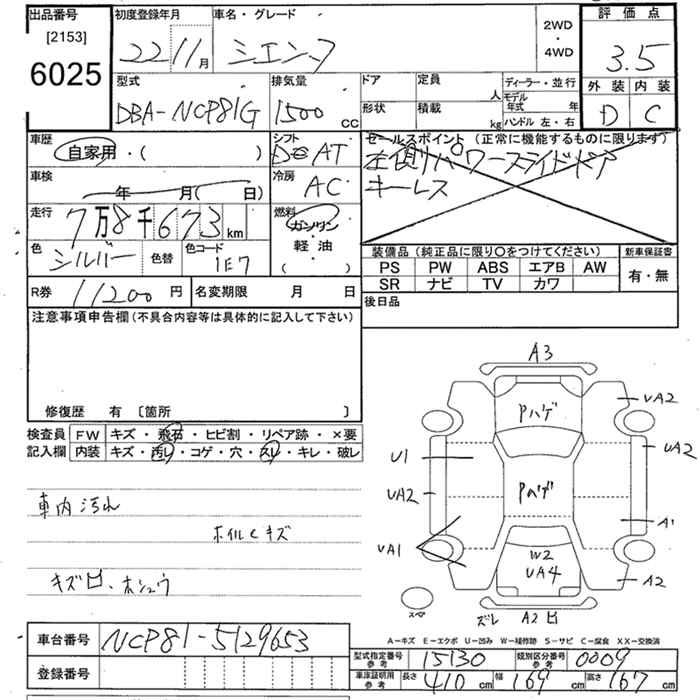 出品番号
[2153]
6025
初度登録年月
22 11月
車名・グレード
シエンタ
2WD
・
4WD
評価点
3.5
外装 内装
D C
型式
DBA-NCP81G
排気量
1500 cc
ドア
定員 人
形状
積載 kg
ディーラー・並行
モデル年式 年
ハンドル 左・右
車歴
自家用・( )
シフト
AT
セールスポイント (正常に機能するものに限ります)
左側パワースライドドア
キーレス
車検
年 月( 日)
冷房
AC
走行
7万8千673km
燃料
ガソリン
・
軽油
( )
色
シルバー
色替
色コード
1E7
装備品 (純正品に限り○をつけてください)
新車保証書
PS PW ABS エアB AW
SR ナビ TV カワ
有・無
R券 11200 円
名変期限 月 日
後日品
注意事項申告欄 (不具合内容等は具体的に記入して下さい)
修復歴 有 〔箇所 〕
検査員
記入欄
FW キズ・飛石・ヒビ割・リペア跡・×要
内装 キズ・汚レ・コゲ・穴・スレ・キレ・破レ
車内汚れ
ホイルCキズ
キズ凹、ホシュウ
A3
Pハゲ
UA2
U1
UA2
UA2
Pハゲ
A1
UA1
W2
UA4
A2
スペア
ズレ A2 凹
A－キズ E－エクボ U－凹み W－補修跡 S－サビ C－腐食 XX－交換済
車台番号 NCP81-5129653
登録番号
型式指定番号 参考 15130
類別区分番号 参考 0009
車庫証明用 参考 長さ 410 cm 幅 169 cm 高さ 167 cm